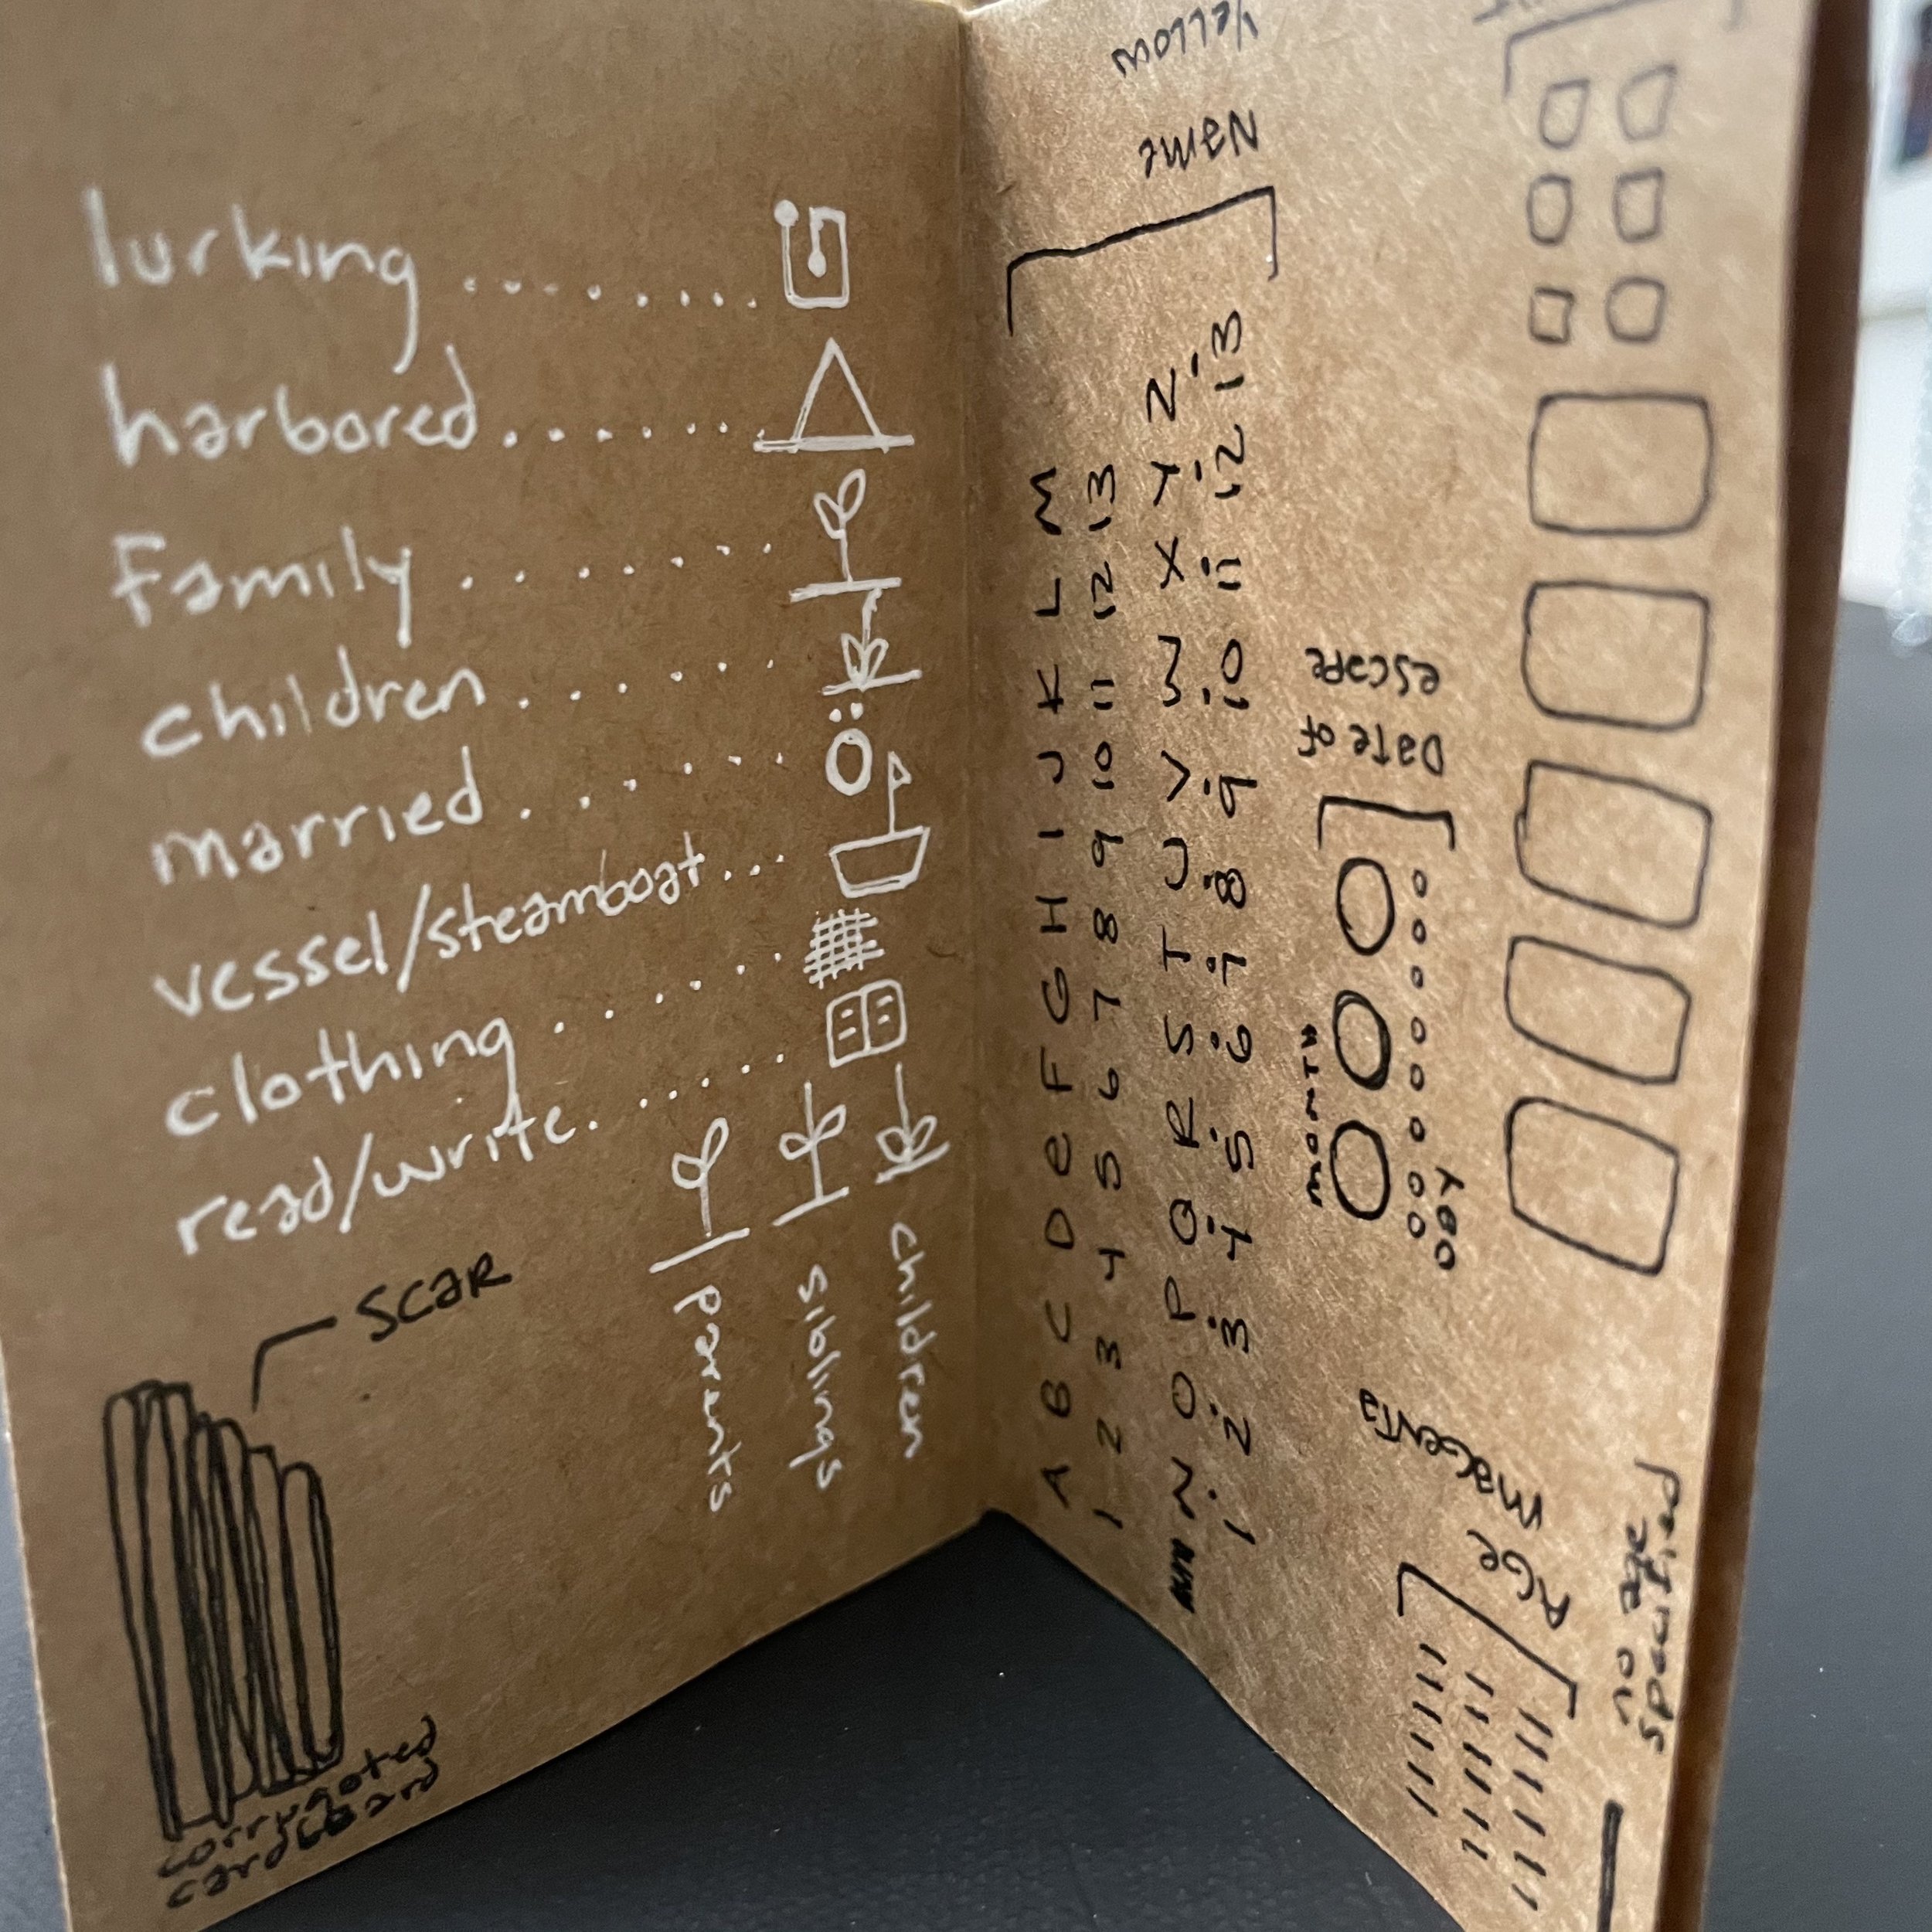 lurking ........
harbored.......
Family .......
children ......
married ......
vessel/steamboat....
clothing .....
read/write......
parents
siblings
children
SCAR
corrugated
cardboard
Yellow
Name
A B C D e F G H I J K L M
1 2 3 4 5 6 7 8 9 10 11 12 13
N O P Q R S T U V W X Y Z
1 2 3 4 5 6 7 8 9 10 11 12 13
Date of
escape
MONTH
DAY
magenta
AGe
no age
specified